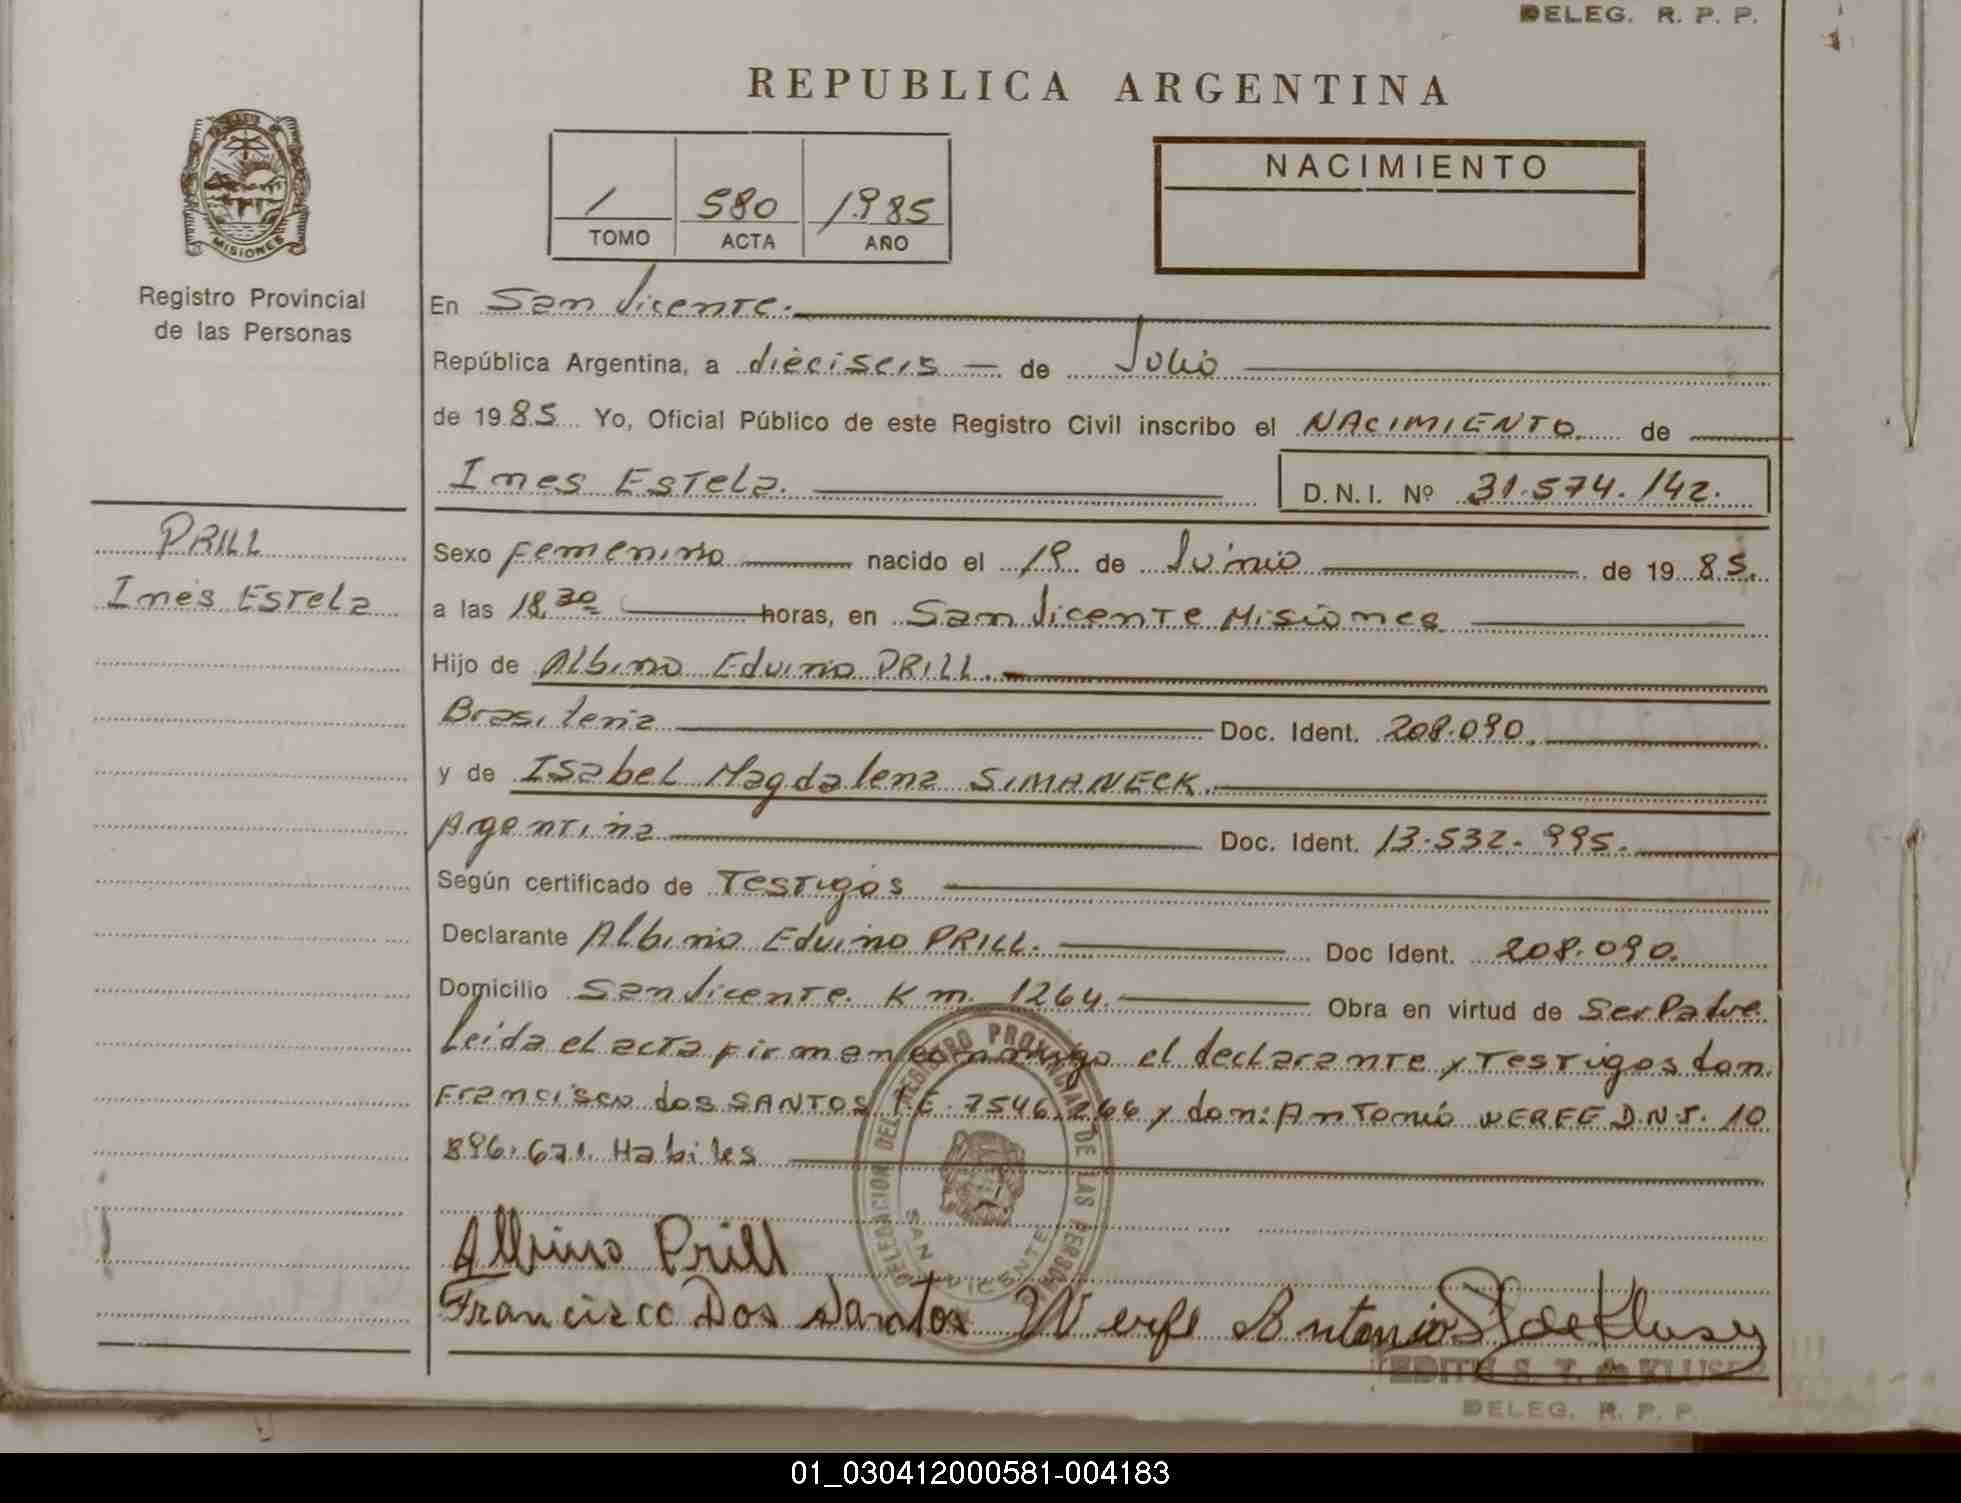 DELEG. R. P. P.
REPUBLICA ARGENTINA
MISIONES
Registro Provincial
de las Personas
1 580 1985
TOMO ACTA AÑO
NACIMIENTO
En San Vicente.
República Argentina, a dieciseis — de Julio
de 1985 Yo, Oficial Público de este Registro Civil inscribo el NACIMIENTO de
Ines Estela. D.N.I. Nº 31.574.142.
PRILL
Ines Estela
Sexo Femenino nacido el 19 de Junio de 1985.
a las 18,30 horas, en San Vicente Misiones
Hijo de Albino Eduino PRILL.
Brasileña Doc. Ident. 208.090.
y de Isabel Magdalena SIMANECK.
Argentina Doc. Ident. 13.532.995.
Según certificado de Testigos
Declarante Albino Eduino PRILL. Doc Ident. 208.090.
Domicilio San Vicente. Km. 1264. Obra en virtud de Ser Padre.
Leida el acta firman conmigo el declarante y Testigos don.
Francisco dos SANTOS I.E. 7546.266 y don: Antonio WERFE D.N.I. 10
896.671. Habiles
DELEGACION DEL REGISTRO PROVINCIAL DE LAS PERSONAS
SAN VICENTE
Albino Prill
Francisco Dos Santos Werfe Antonio
EDITH S. T. de KLUSE
DELEG. R. P. P.
01_030412000581-004183